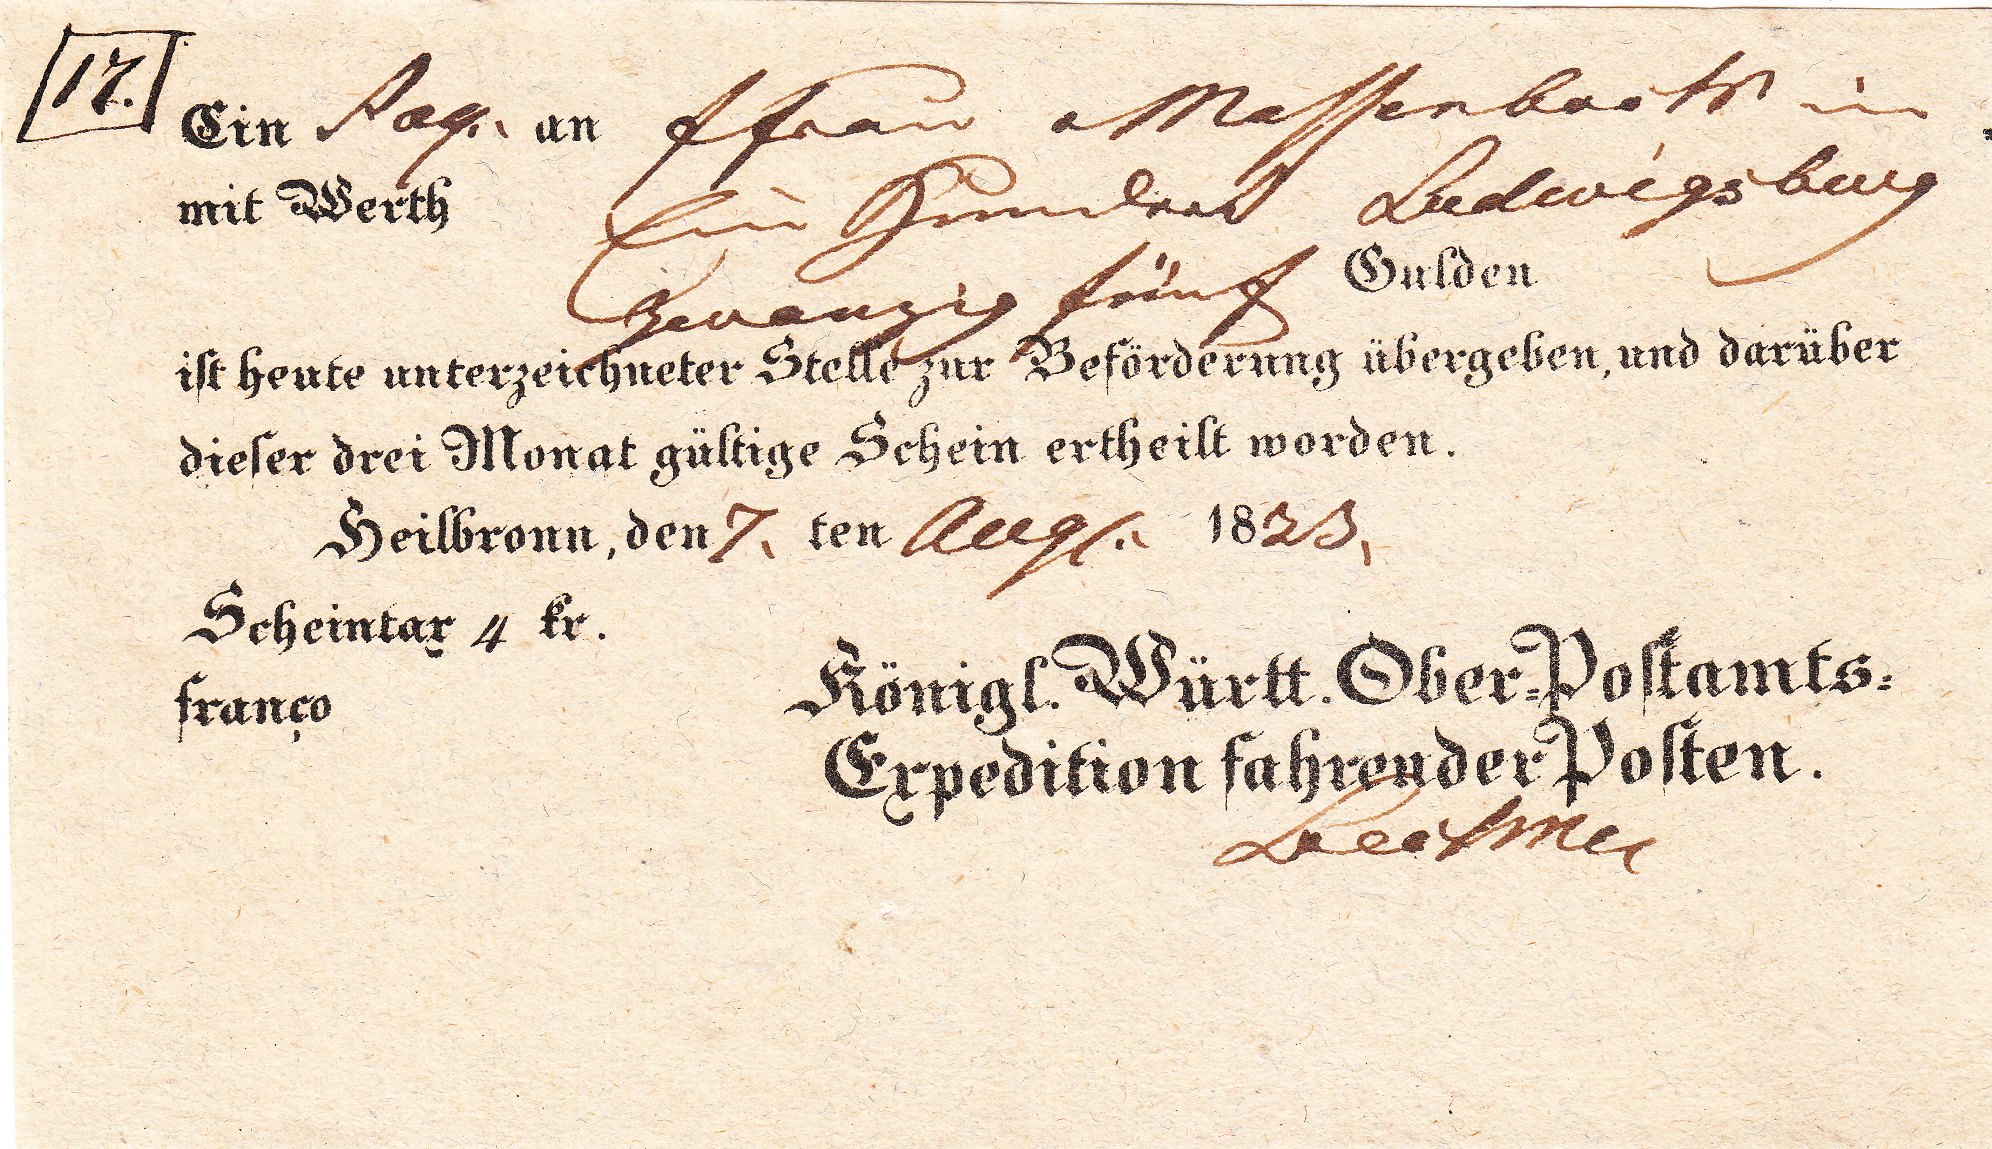 17.
Ein Paq. an Frau v Massenbach in
mit Werth Ein Hundert Ludwigsburg
zwanzig fünf Gulden
ist heute unterzeichneter Stelle zur Beförderung übergeben, und darüber
dieser drei Monat gültige Schein ertheilt worden.
Heilbronn, den 7. ten Aug. 1823.
Scheintax 4 kr.
franco
Königl. Württ. Ober-Postamts-
Expedition fahrender Posten.